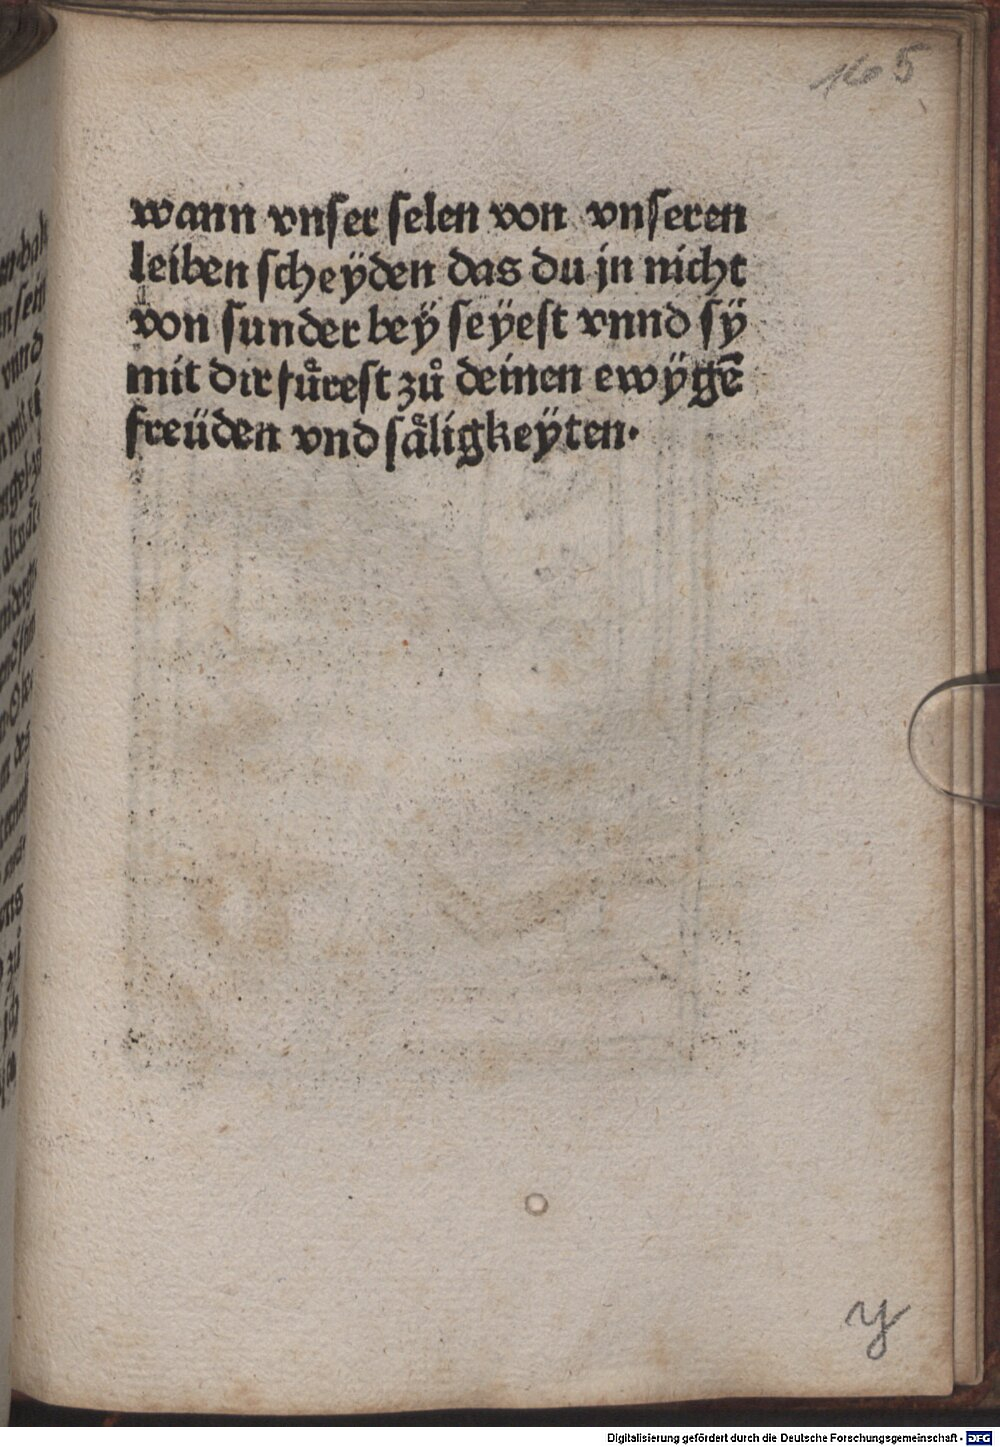 165
wann vnser selen von vnseren
leiben scheÿden das du jn nicht
von sunder beÿ seÿest vnnd sÿ
mit dir fuͤrest zuͦ deinen ewÿgē
freüden vnd saͤligkeÿten·
y
vnnd
des
vns
zuͦ
Digitalisierung gefördert durch die Deutsche Forschungsgemeinschaft - DFG